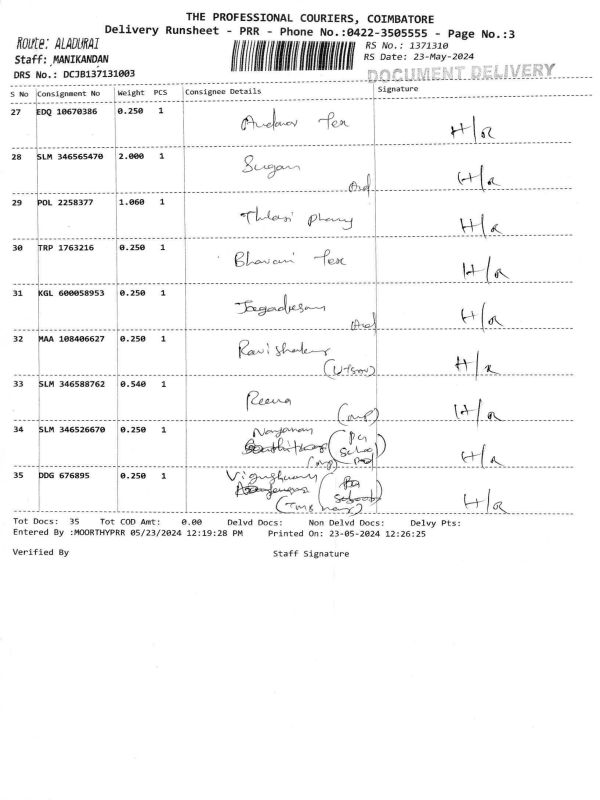 THE PROFESSIONAL COURIERS, COIMBATORE
Delivery Runsheet - PRR - Phone No.:0422-3505555 - Page No.:3
Route: ALADURAI
RS No.: 1371310
Staff: MANIKANDAN
RS Date: 23-May-2024
DRS No.: DCJB137131003
DOCUMENT DELIVERY
S No Consignment No Weight PCS Consignee Details Signature
27 EDQ 10670386 0.250 1 Tex H/R
28 SLM 346565470 2.000 1 Sugan H/R
29 POL 2258377 1.060 1 H/R
30 TRP 1763216 0.250 1 Bhavani Tex H/R
31 KGL 600058953 0.250 1 Jagadesan H/R
32 MAA 108406627 0.250 1 H/R
33 SLM 346588762 0.540 1 Reena H/R
(mp)
34 SLM 346526670 0.250 1 H/R
35 DDG 676895 0.250 1 H/R
Tot Docs: 35 Tot COD Amt: 0.00 Delvd Docs: Non Delvd Docs: Delvy Pts:
Entered By :MOORTHYPRR 05/23/2024 12:19:28 PM Printed On: 23-05-2024 12:26:25
Verified By Staff Signature